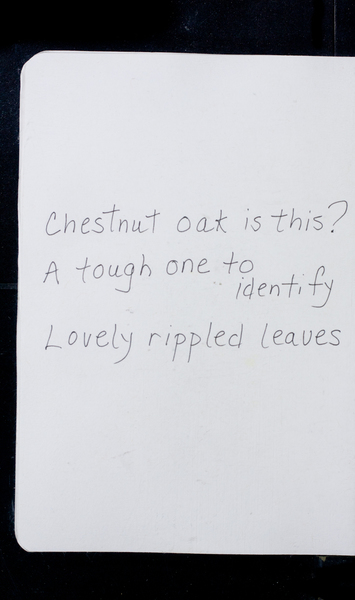 Chestnut oak is this?
A tough one to
identify
Lovely rippled leaves